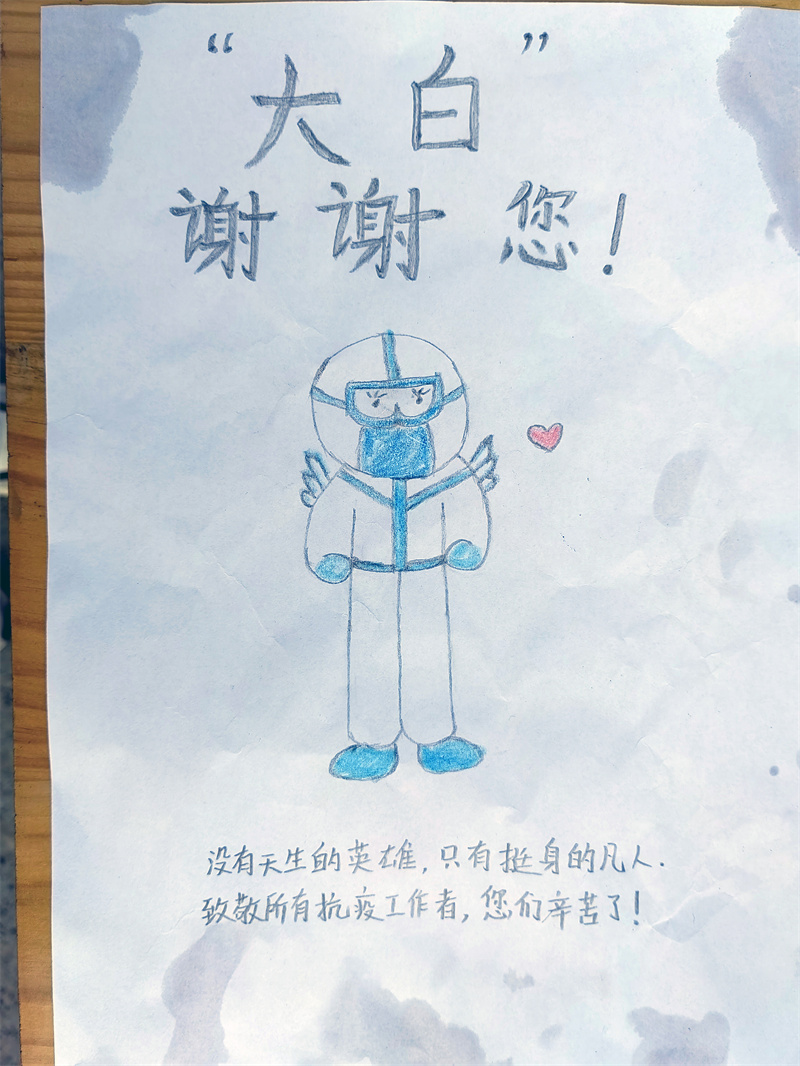 “大白”
谢谢您！
没有天生的英雄，只有挺身的凡人.
致敬所有抗疫工作者，您们辛苦了！